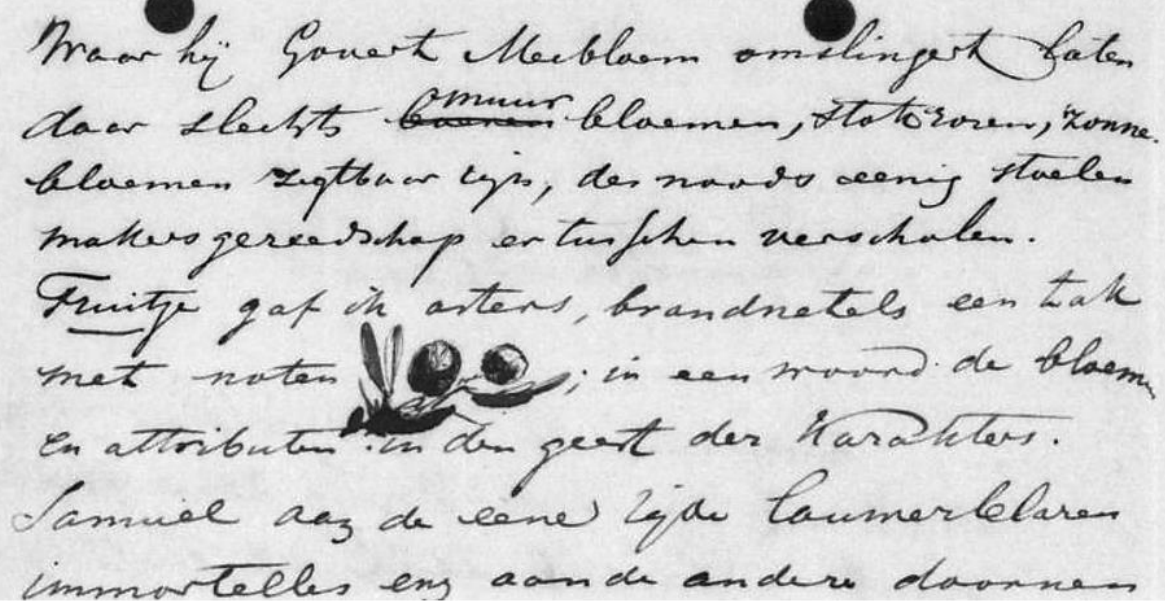 Waar hij Govert Meibloem omslingert laten
daar slechts boeren muur bloemen, stokrozen, zonne-
bloemen zigtbaar zijn, des noods eenig stoelen
makersgereedschap er tusschen verscholen.
Fruitje gaf ik asters, brandnetels een tak
met noten ; in een woord de bloemen
en attributen in den geest der karakters.
Samuel aan de eene zijde laurierbladen
immortelles enz aan de andere doornen